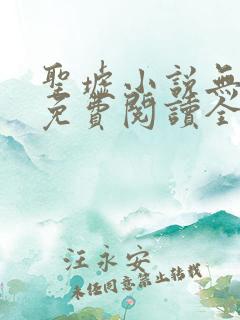 聖墟小說無
免費閱讀全
汪永安
未經同意禁止轉載